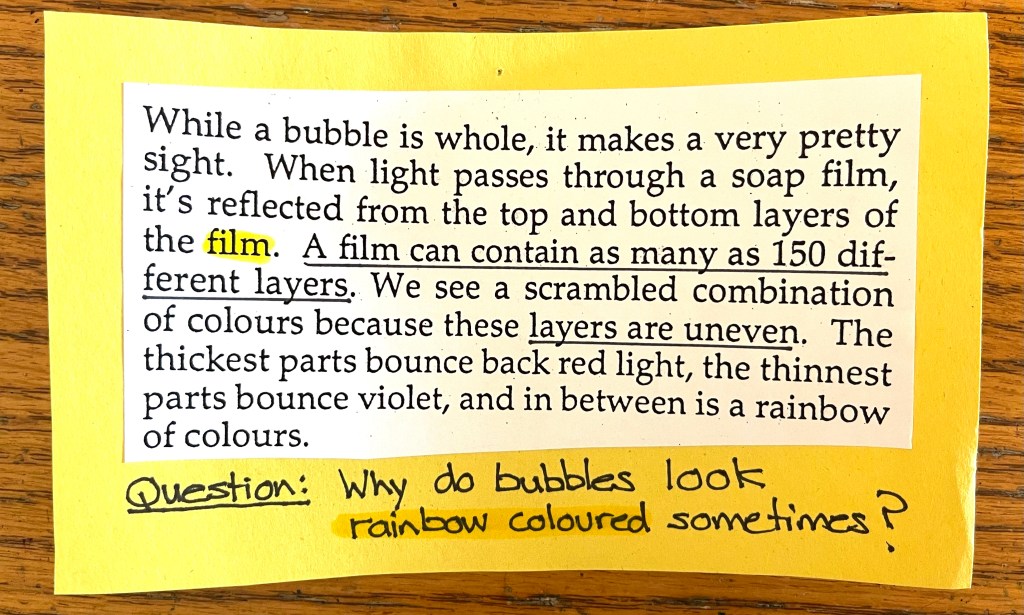 While a bubble is whole, it makes a very pretty
sight. When light passes through a soap film,
it's reflected from the top and bottom layers of
the film. A film can contain as many as 150 dif-
ferent layers. We see a scrambled combination
of colours because these layers are uneven. The
thickest parts bounce back red light, the thinnest
parts bounce violet, and in between is a rainbow
of colours.
Question: Why do bubbles look
rainbow coloured sometimes?